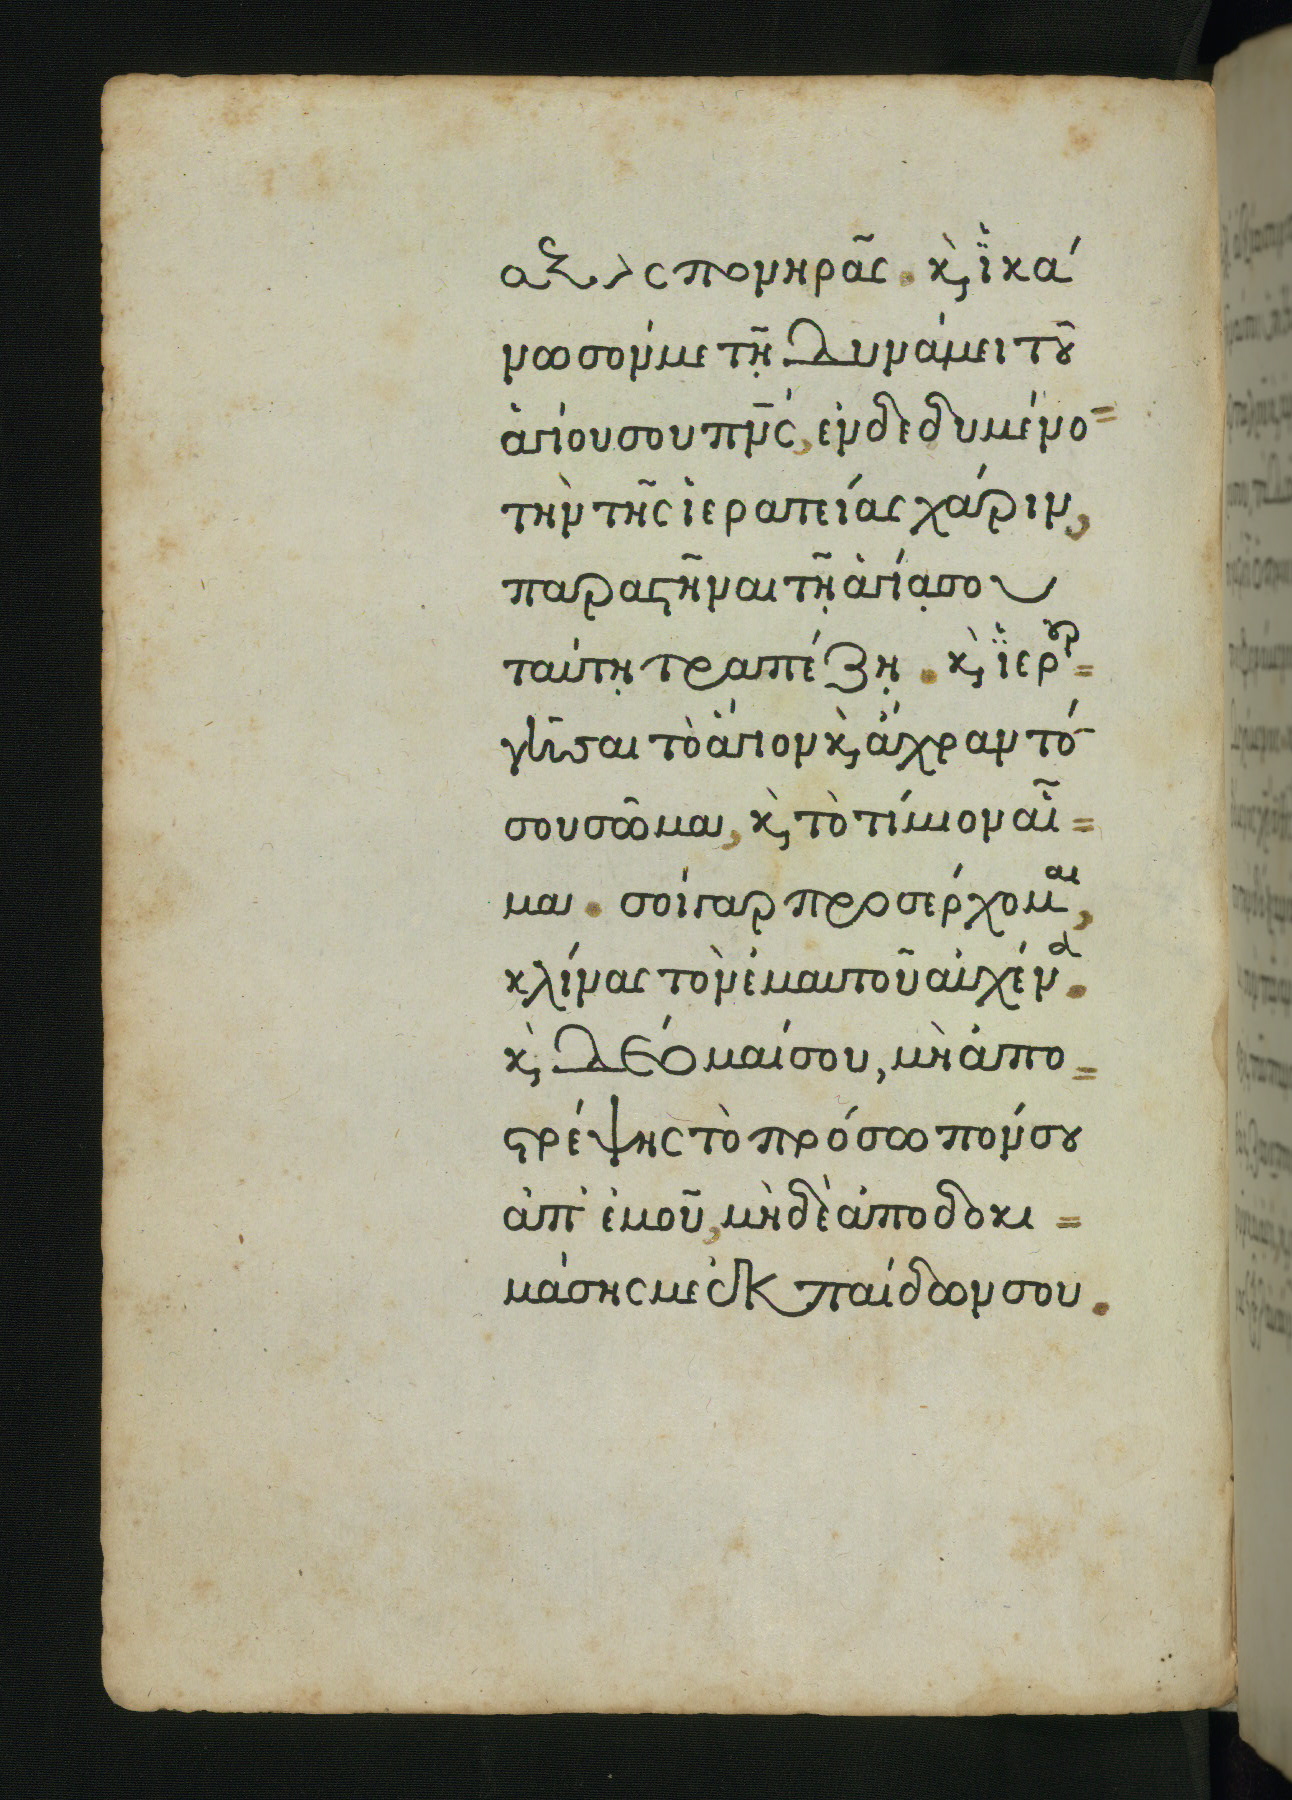 αξεως πονηρᾶς. κ̀, ἱκά
νωσόν με τῇ δυνάμει τȣ͂
ἁγίου σου πν̅ς, ἐνδεδυμένο=
τὴν τῆς ἱερατείας χάριν,
παραστῆναι τῇ ἁγίᾳ σου
ταύτῃ τραπέζῃ. κ̀, ἱερȣρ=
γῆσαι τὸ ἅγιον κ̀, ἄχραντό
σου σῶμα, κ̀, τὸ τίμιον αἷ=
μα. σοὶ γὰρ προσέρχομαι,
κλίνας τὸν ἐμαυτοῦ αὐχένα.
κ̀, δέομαί σου, μὴ ἀπο=
στρέψῃς τὸ πρόσωπόν σȣ
ἀπ' ἐμοῦ, μὴδὲ ἀποδοκι=
μάσῃς με ἐκ παίδων σου.